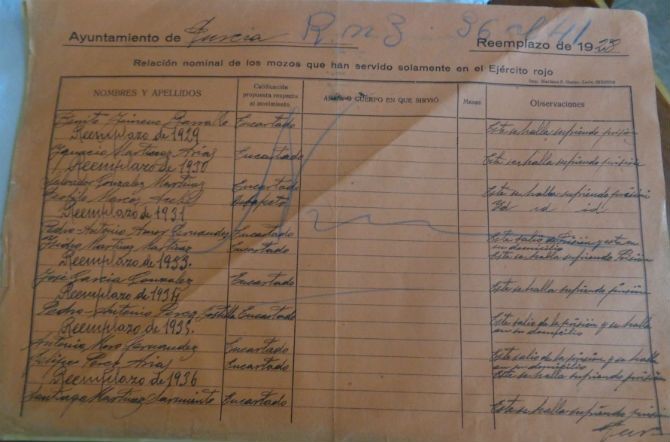 Ayuntamiento de Turcia R. n 3 96 al 41 Reemplazo de 1928.
Relación nominal de los mozos que han servido solamente en el Ejército rojo
NOMBRES Y APELLIDOS Calificación propuesta respecto al movimiento ARMA O CUERPO EN QUE SIRVIÓ Meses Observaciones
Benito Encartado Este se halla sufriendo prisión
Reemplazo de 1929
Ignacio Martinez Arias Encartado Este se halla sufriendo prisión
Reemplazo de 1930
Salvador Gonzalez Martinez Encartado Este se halla sufriendo prisión
Marcos Id id id.
Reemplazo de 1931
Pedro Antonio Fernandez Encartado Este salio de Prisión y esta en su domicilio
Martinez Martinez Encartado se halla sufriendo Prisión
Reemplazo de 1933.
José Garcia Gonzalez Encartado Este se halla sufriendo prisión
Reemplazo de 1934
Pedro Antonio Perez Encartado Este salio de la prision y se halla en su domicilio
Reemplazo de 1935.
Antonio Fernandez Encartado Este salio de la prision y se halla en su domicilio
Perez Arias Encartado Este se halla sufriendo prisión
Reemplazo de 1936
Santiago Martinez Sarmiento Encartado Este se halla sufriendo prisión